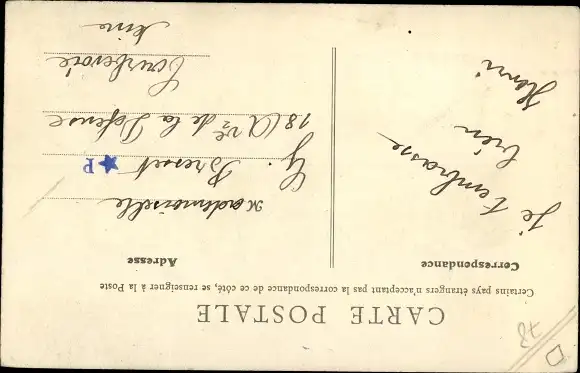 CARTE POSTALE
Certains pays étrangers n'acceptant pas la correspondance de ce côté, se renseigner à la Poste
Correspondance
Je t'embrasse
bien
Henri
Adresse
Mademoiselle
G. Bresset
18 Ave de la Défense
Courbevoie
Seine
★P
78